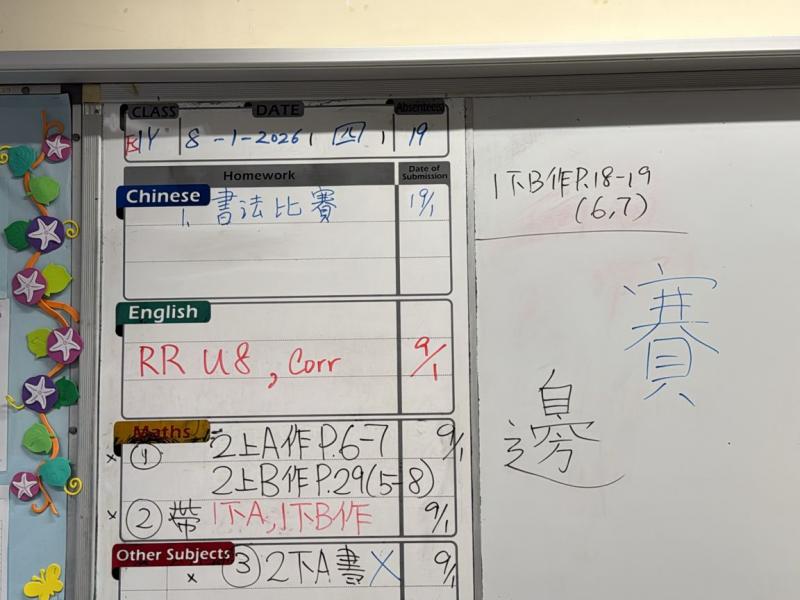 CLASS DATE Absentees
1Y 8-1-2026, 四, 19
Homework Date of Submission
Chinese
1. 書法比賽 19/1
English
RR U8, Corr 9/1
Maths
× ① 2上A作P.6-7 9/1
2上B作P.29(5-8)
× ② 帶1下A,1下B作 9/1
Other Subjects
× ③ 2下A書X 9/1
1下B作P.18-19
(6,7)
賽
邊